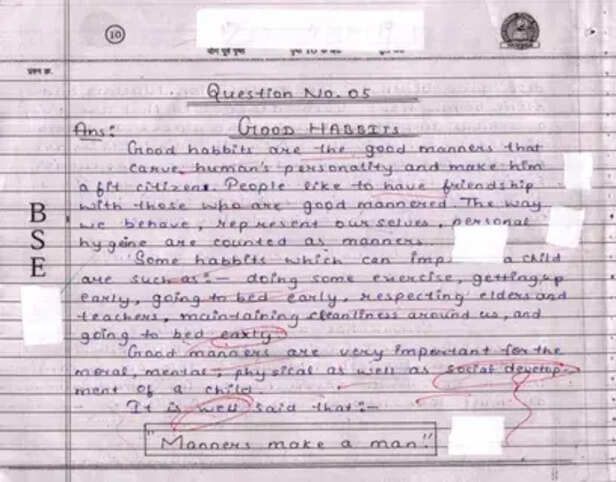 10
प्रश्न क्र.
Question No. 05
Ans: GOOD HABBITS
Good habbits are the good manners that
carve human's personality and make him
a fit citizen. People like to have friendship
with those who are good mannered. The way
we behave, represent ourselves, personal
hygeine are counted as manners.
Some habbits which can imp a child
are such as:- doing some exercise, getting up
early, going to bed early, respecting elders and
teachers, maintaining cleanliness around us, and
going to bed early.
Good manners are very important for the
moral, mental, physical as well as social develop-
ment of a child
It is well said that:-
"Manners make a man."
B
S
E